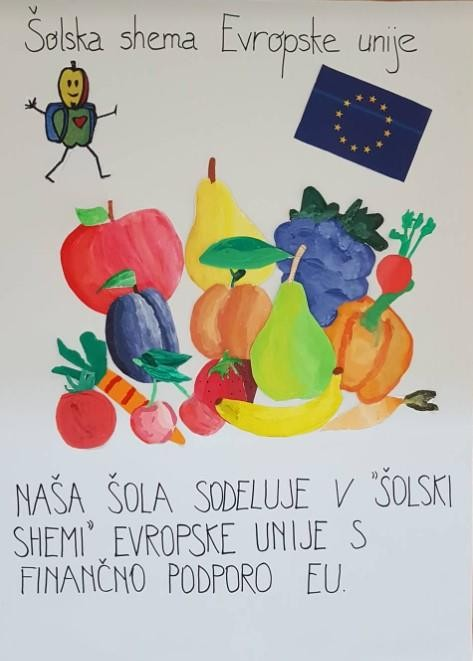 Šolska shema Evropske unije
NAŠA ŠOLA SODELUJE V "ŠOLSKI
SHEMI" EVROPSKE UNIJE S
FINANČNO PODPORO EU.